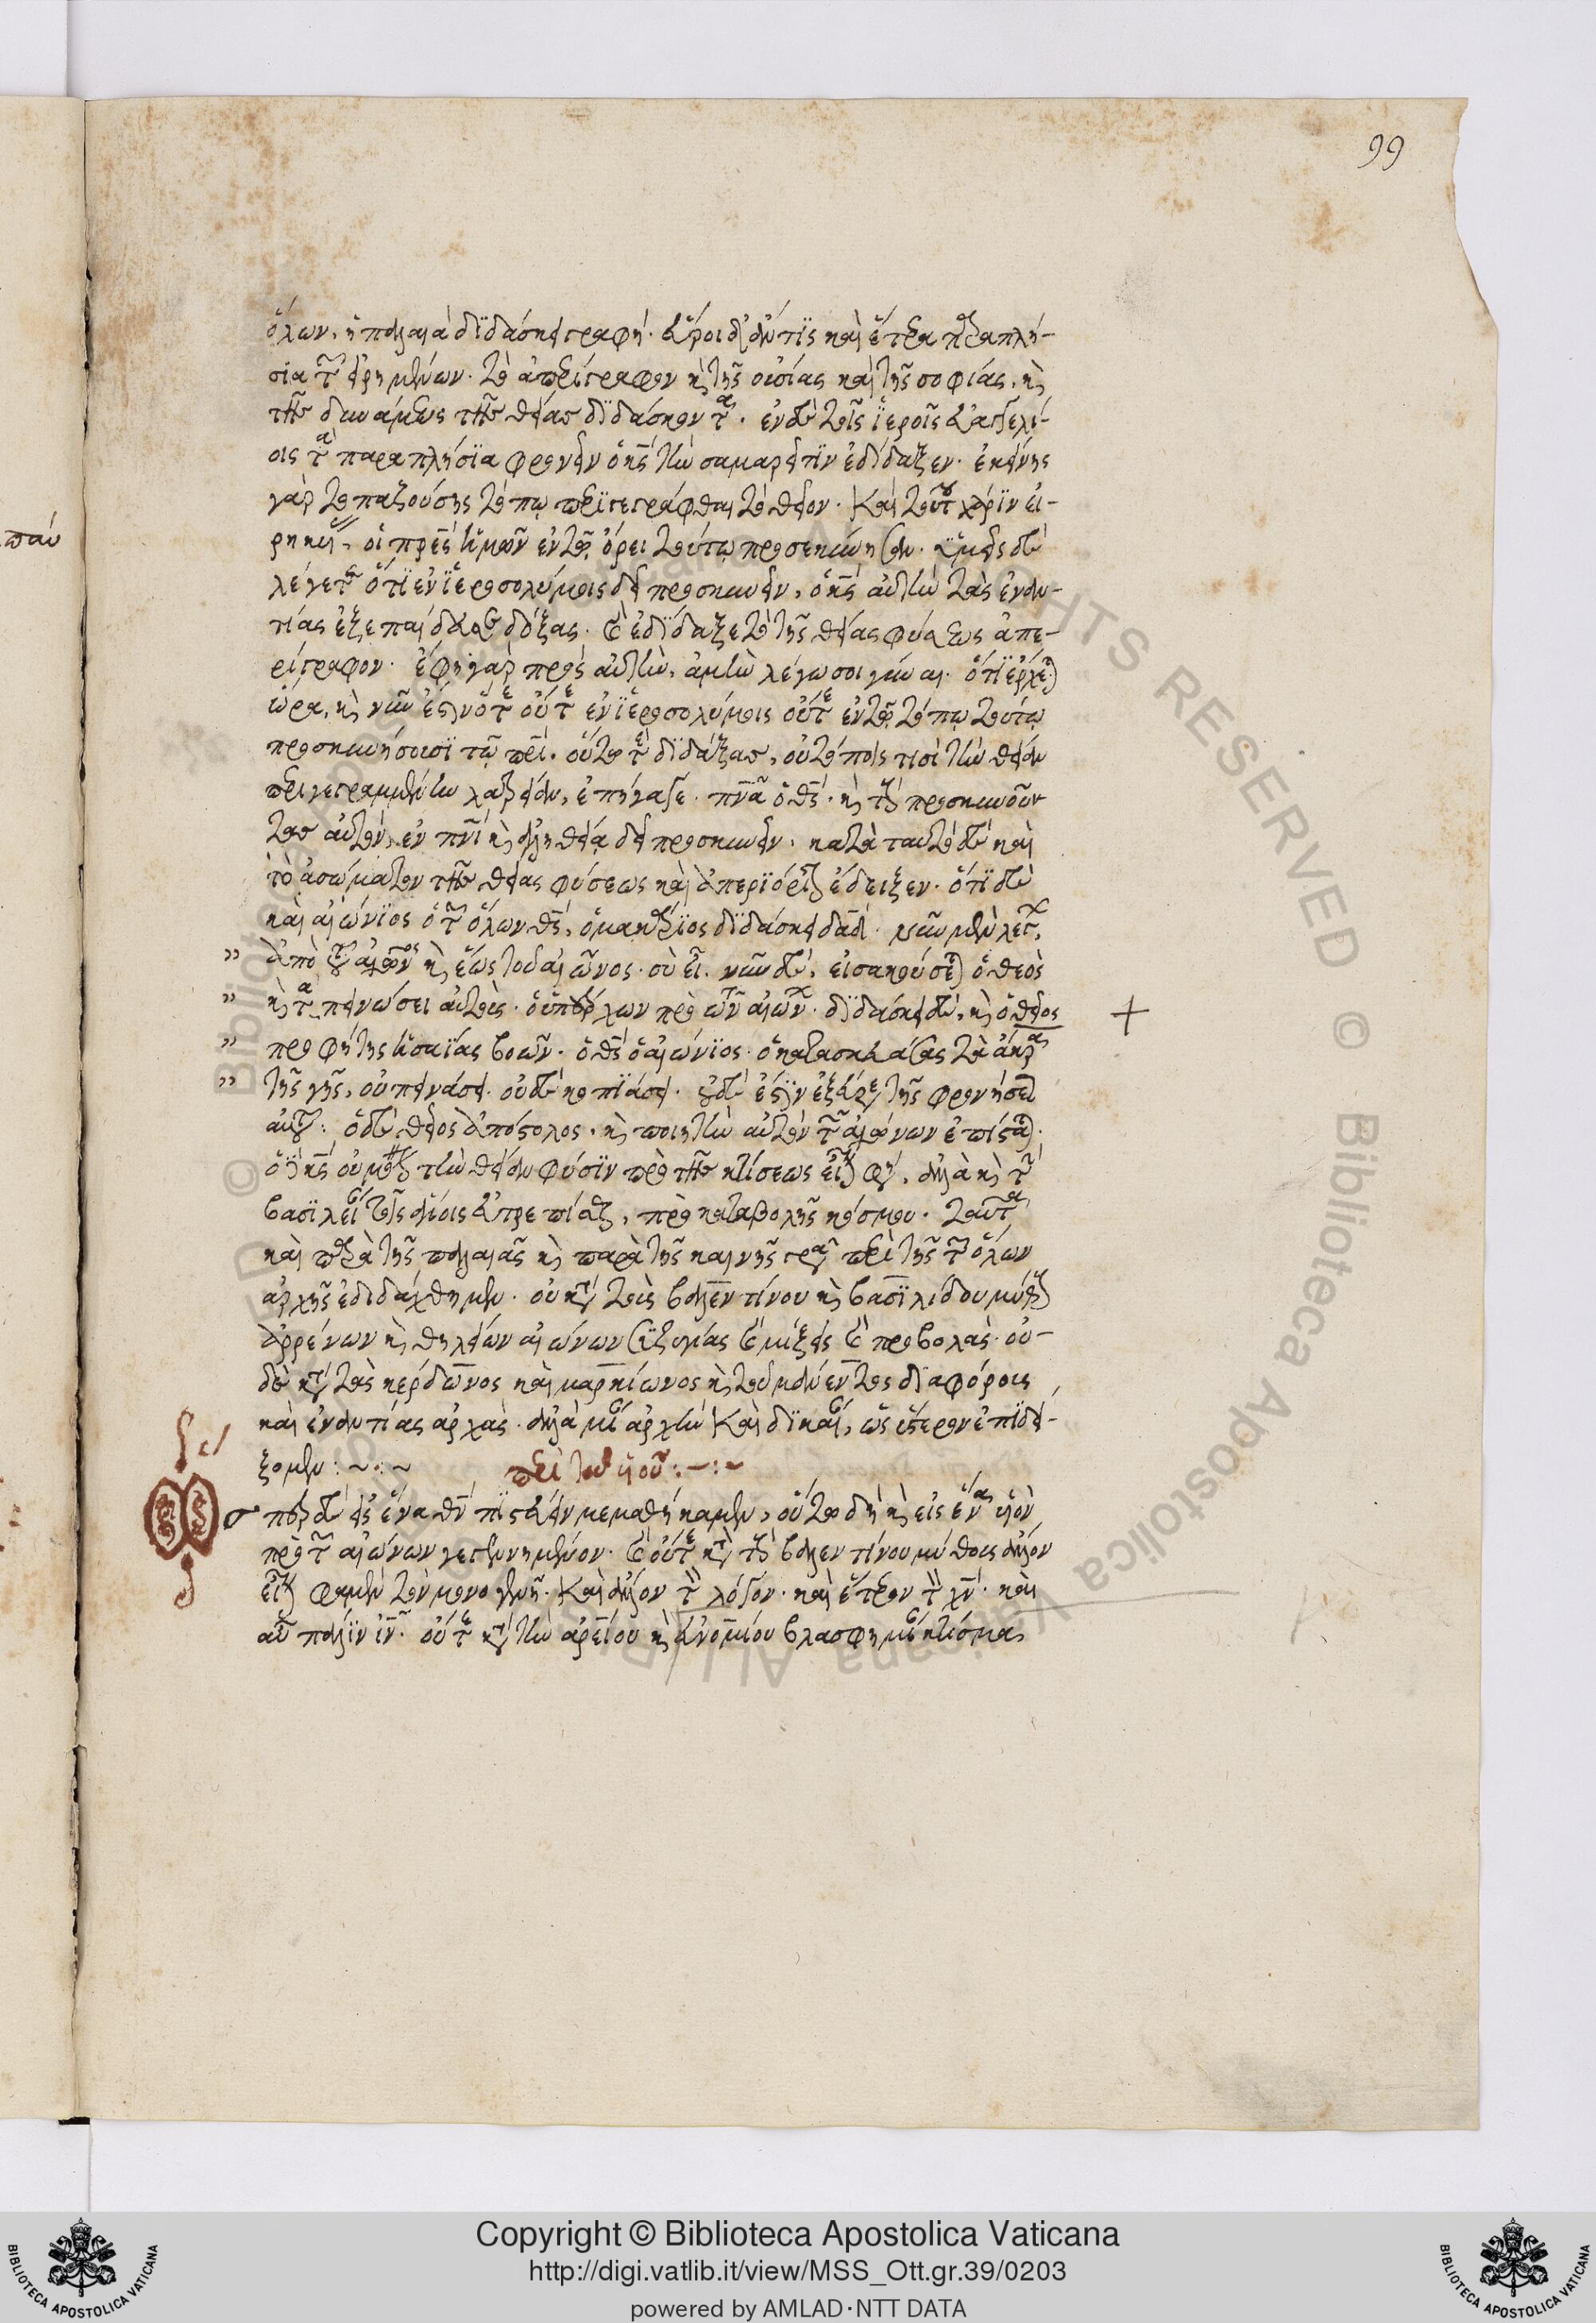 99
ὅλων, ἡ παλαιὰ διδάσκει γραφή. εὕροι δ' ἄν τις καὶ ἕτερα παραπλή-
σια τῶν εἰρημένων. τὸ ἀπερίγραφον κὶ τῆς οὐσίας καὶ τῆς σοφίας, κὶ
τῆς δυνάμεως τῆς θείας διδάσκοντα. ἐν δὲ τοῖς ἱεροῖς εὐαγγελί-
οις τὰ παραπλήσια φρονεῖν ὁ κς τὴν σαμαρεῖτιν ἐδίδαξεν. ἐκείνης
γὰρ τοπαζούσης τόπῳ περιγεγράφθαι τὸ θεῖον. καὶ τούτου χάριν εἰ-
ρηκυίας, οἱ πρες ἡμῶν ἐν τῷ ὄρει τούτῳ προσεκύνησαν. ὑμεῖς δὲ
λέγετε ὅτι ἐν ἱεροσολύμοις δεῖ προσκυνεῖν, ὁ κς αὐτὴν τὰς ἐναν-
τίας ἐξεπαίδευσε δόξας. καὶ ἐδίδαξε τὸ τῆς θείας φύσεως ἀπε-
ρίγραφον. ἔφη γὰρ πρὸς αὐτὴν, ἀμὴν λέγω σοι γύναι. ὅτι ἔρχεται
ὥρα, κὶ νῦν ἐστὶν ὅτε οὔτε ἐν ἱεροσολύμοις οὔτε ἐν τῷ τόπῳ τούτῳ
προσκυνήσουσι τῷ πρι. οὕτω
πνα ὁ θς. κὶ τοὺς προσκυνοῦν
τας αὐτὸν, ἐν πνι κὶ ἀληθείᾳ δεῖ προσκυνεῖν. κατὰ ταυτὸ δὲ καὶ
τὸ ἀσώματον τῆς θείας φύσεως καὶ ἀπεριόριστον ἔδειξεν. ὅτι δὲ
καὶ αἰώνιος ὁ τῶν ὅλων θς, ὁ μακάριος διδάσκει δαδ. νῦν μὲν λέγων,
" ἀπὸ τοῦ αἰῶνος κὶ ἕως τοῦ αἰῶνος. σὺ εἶ. νῦν δὲ, εἰσακούσεται ὁ θεὸς
" κὶ ταπεινώσει αὐτοὺς. ὁ ὑπάρχων πρὸ τῶν αἰώνων. διδάσκει δὲ, κὶ ὁ θεῖος +
" προφήτης ἡσαΐας βοῶν. ὁ θς ὁ αἰώνιος. ὁ κατασκευάσας τὰ ἄκρα
" τῆς γῆς, οὐ πεινάσει. οὐδὲ κοπιάσει. οὐδὲ ἐστὶν ἐξεύρεσις τῆς φρονήσεως
αὐτοῦ: ὁ δὲ θεῖος ἀπόστολος, κὶ ποιητὴν αὐτὸν τῶν αἰώνων ἐπίσταται.
ὁ δὲ κς οὐ μόνον τὴν θείαν φύσιν πρὸ τῆς κτίσεως εἶναί φησι, ἀλλὰ κὶ τὴν
βασιλείαν τοῖς ἁγίοις εὐτρεπίσαι, πρὸ καταβολῆς κόσμου. ταῦτα
καὶ παρὰ τῆς παλαιᾶς κὶ παρὰ τῆς καινῆς γραφῆς περὶ τῆς τῶν ὅλων
ἀρχῆς ἐδιδάχθημεν. οὐ κατὰ τοὺς βαλεντίνου κὶ βασιλίδου μύθους
ἀρρένων κὶ θηλειῶν αἰώνων συζυγίας καὶ μίξεις καὶ προβολάς. οὐ-
δὲ κατὰ τὰς κέρδωνος καὶ μαρκίωνος κὶ τοῦ μάνεντος διαφόρους
καὶ ἐναντίας ἀρχάς. ἀλλὰ μίαν ἀρχὴν καὶ δικαίαν, ὡς ὕστερον ἐπιδεί-
ξομεν: ~·~ περὶ τοῦ υἱοῦ: ~·~
ὥσπερ δὲ εἰς ἕνα θν πιστεύειν μεμαθήκαμεν, οὕτω δὴ κὶ εἰς ἕνα υἱὸν
πρὸ τῶν αἰώνων γεγεννημένον. καὶ οὔτε κατὰ τοὺς βαλεντίνου μύθους ἄλλον
εἶναι φαμὲν τὸν μονογενῆ. καὶ ἄλλον τὸν λόγον. καὶ ἕτερον τὸν χν. καὶ
αὖ πάλιν ιν. οὔτε κατὰ τὴν ἀρείου κὶ εὐνομίου βλασφημίαν κτίσμα
Copyright © Biblioteca Apostolica Vaticana
http://digi.vatlib.it/view/MSS_Ott.gr.39/0203
powered by AMLAD·NTT DATA
BIBLIOTECA APOSTOLICA VATICANA
BIBLIOTECA APOSTOLICA VATICANA